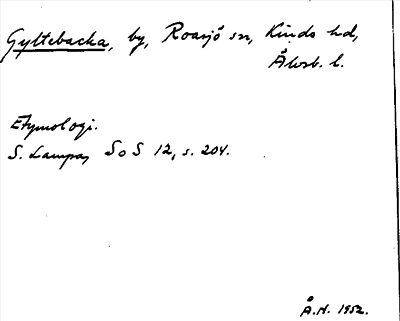 Gyltebacka, by, Roasjö sn, Kinds hd,
Älvsb. l.
Etymologi.
S. Lampa, SoS 12, s. 204.
Å.H. 1952.